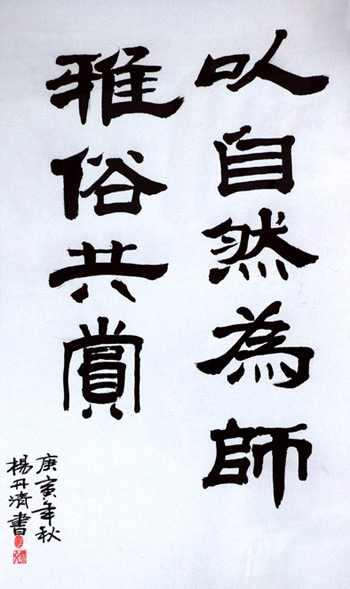 以自然為師
雅俗共賞
庚寅年秋
楊丹濤書